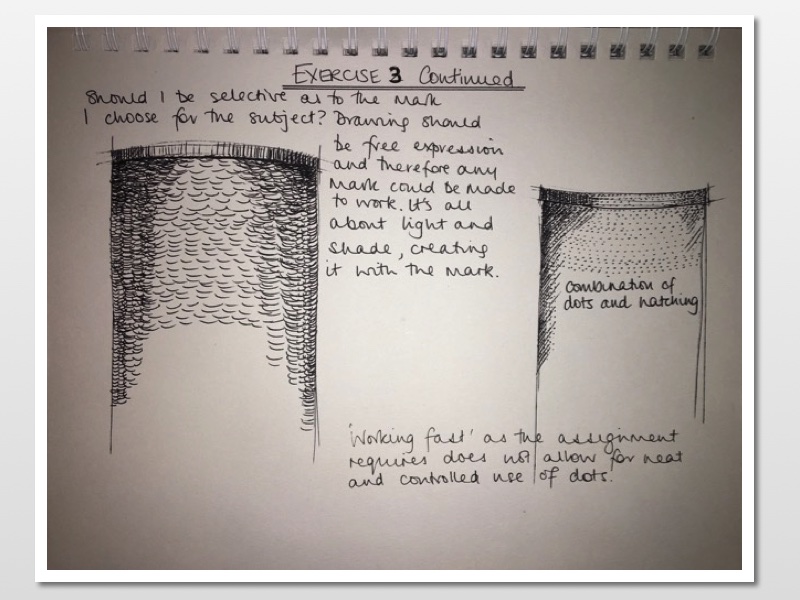 EXERCISE 3 Continued
Should I be selective as to the mark
I choose for the subject? Drawing should
be free expression
and therefore any
mark could be made
to work. It's all
about light and
shade, creating
it with the mark.
Combination of
dots and hatching
'Working fast' as the assignment
requires does not allow for neat
and controlled use of dots.